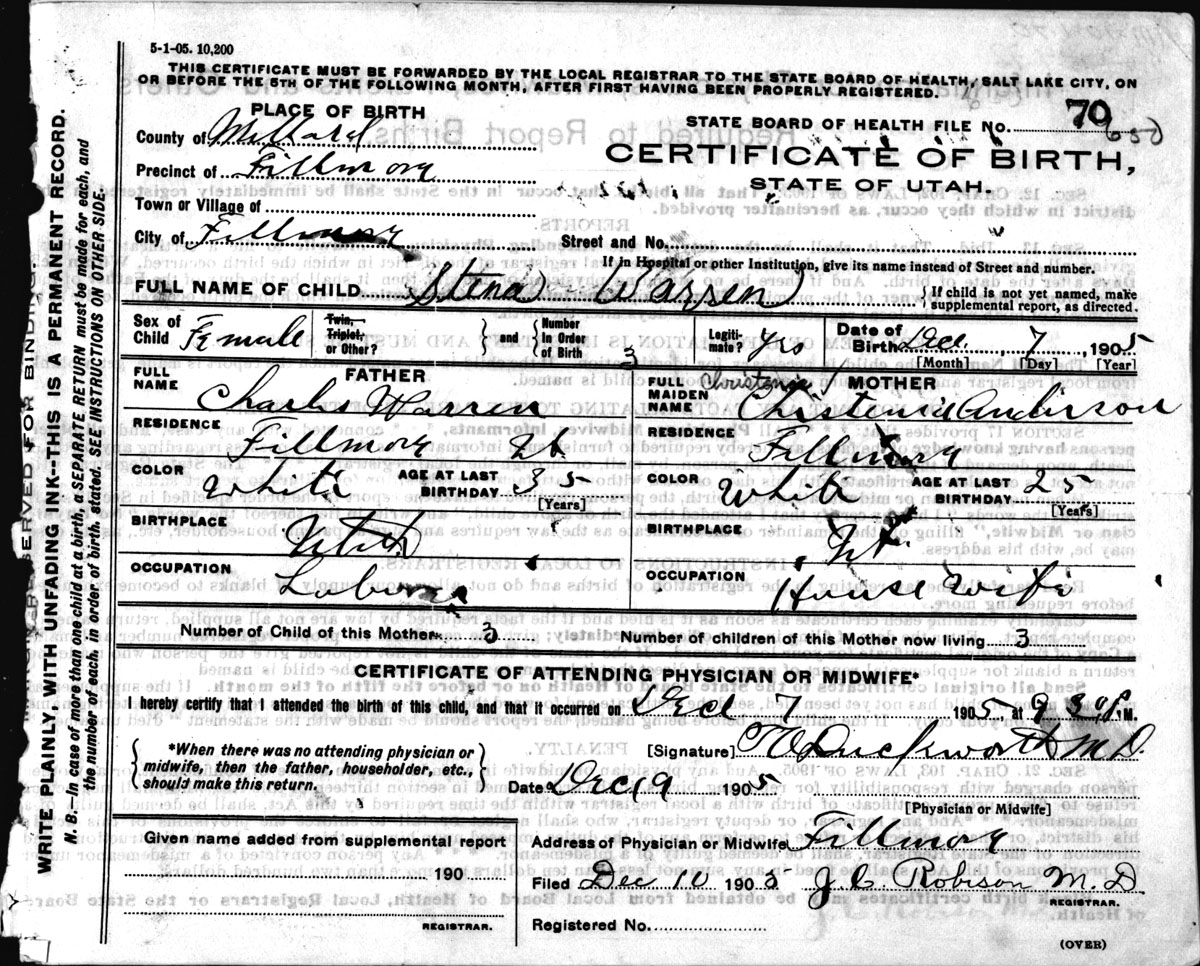 5-1-05. 10,200
THIS CERTIFICATE MUST BE FORWARDED BY THE LOCAL REGISTRAR TO THE STATE BOARD OF HEALTH, SALT LAKE CITY, ON
OR BEFORE THE 5TH OF THE FOLLOWING MONTH, AFTER FIRST HAVING BEEN PROPERLY REGISTERED.
PLACE OF BIRTH
County of Millard
Precinct of Fillmore
Town or Village of
City of Fillmore
STATE BOARD OF HEALTH FILE No. 70
CERTIFICATE OF BIRTH,
STATE OF UTAH.
Street and No.
If in Hospital or other Institution, give its name instead of Street and number.
FULL NAME OF CHILD Stena Warren
{If child is not yet named, make supplemental report, as directed.
Sex of Child Female
Twin, Triplet, or Other? } and { Number in Order of Birth 3
Legitimate? Yes
Date of Birth Dec. 7, 1905
[Month] [Day] [Year]
FATHER
FULL NAME Charles Warren
RESIDENCE Fillmore Ut
COLOR White AGE AT LAST BIRTHDAY 35
[Years]
BIRTHPLACE Utah
OCCUPATION Laborer
MOTHER
FULL MAIDEN NAME Christenia Anderson
RESIDENCE Fillmore
COLOR White AGE AT LAST BIRTHDAY 25
[Years]
BIRTHPLACE Ut.
OCCUPATION House wife
Number of Child of this Mother 3
Number of children of this Mother now living 3
CERTIFICATE OF ATTENDING PHYSICIAN OR MIDWIFE*
I hereby certify that I attended the birth of this child, and that it occurred on Dec 7 1905, at 9 30 P. M.
{*When there was no attending physician or
midwife, then the father, householder, etc.,
should make this return.}
[Signature] Duckworth M.D.
Date Dec 9 1905
[Physician or Midwife]
Given name added from supplemental report
190
REGISTRAR.
Address of Physician or Midwife Fillmore
Filed Dec 10 1905 J C Robison M.D
REGISTRAR.
Registered No.
(OVER)
WRITE PLAINLY, WITH UNFADING INK--THIS IS A PERMANENT RECORD.
N. B.--In case of more than one child at a birth, a SEPARATE RETURN must be made for each, and
the number of each, in order of birth, stated. SEE INSTRUCTIONS ON OTHER SIDE.